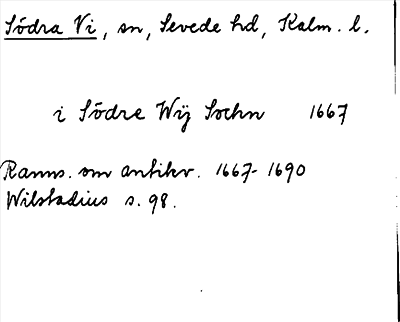 Södra Vi, sn, Sevede hd, Kalm. l.
i Södre Wij Sochn 1667
Ranns. om antikv. 1667-1690
Wilstadius s. 98.